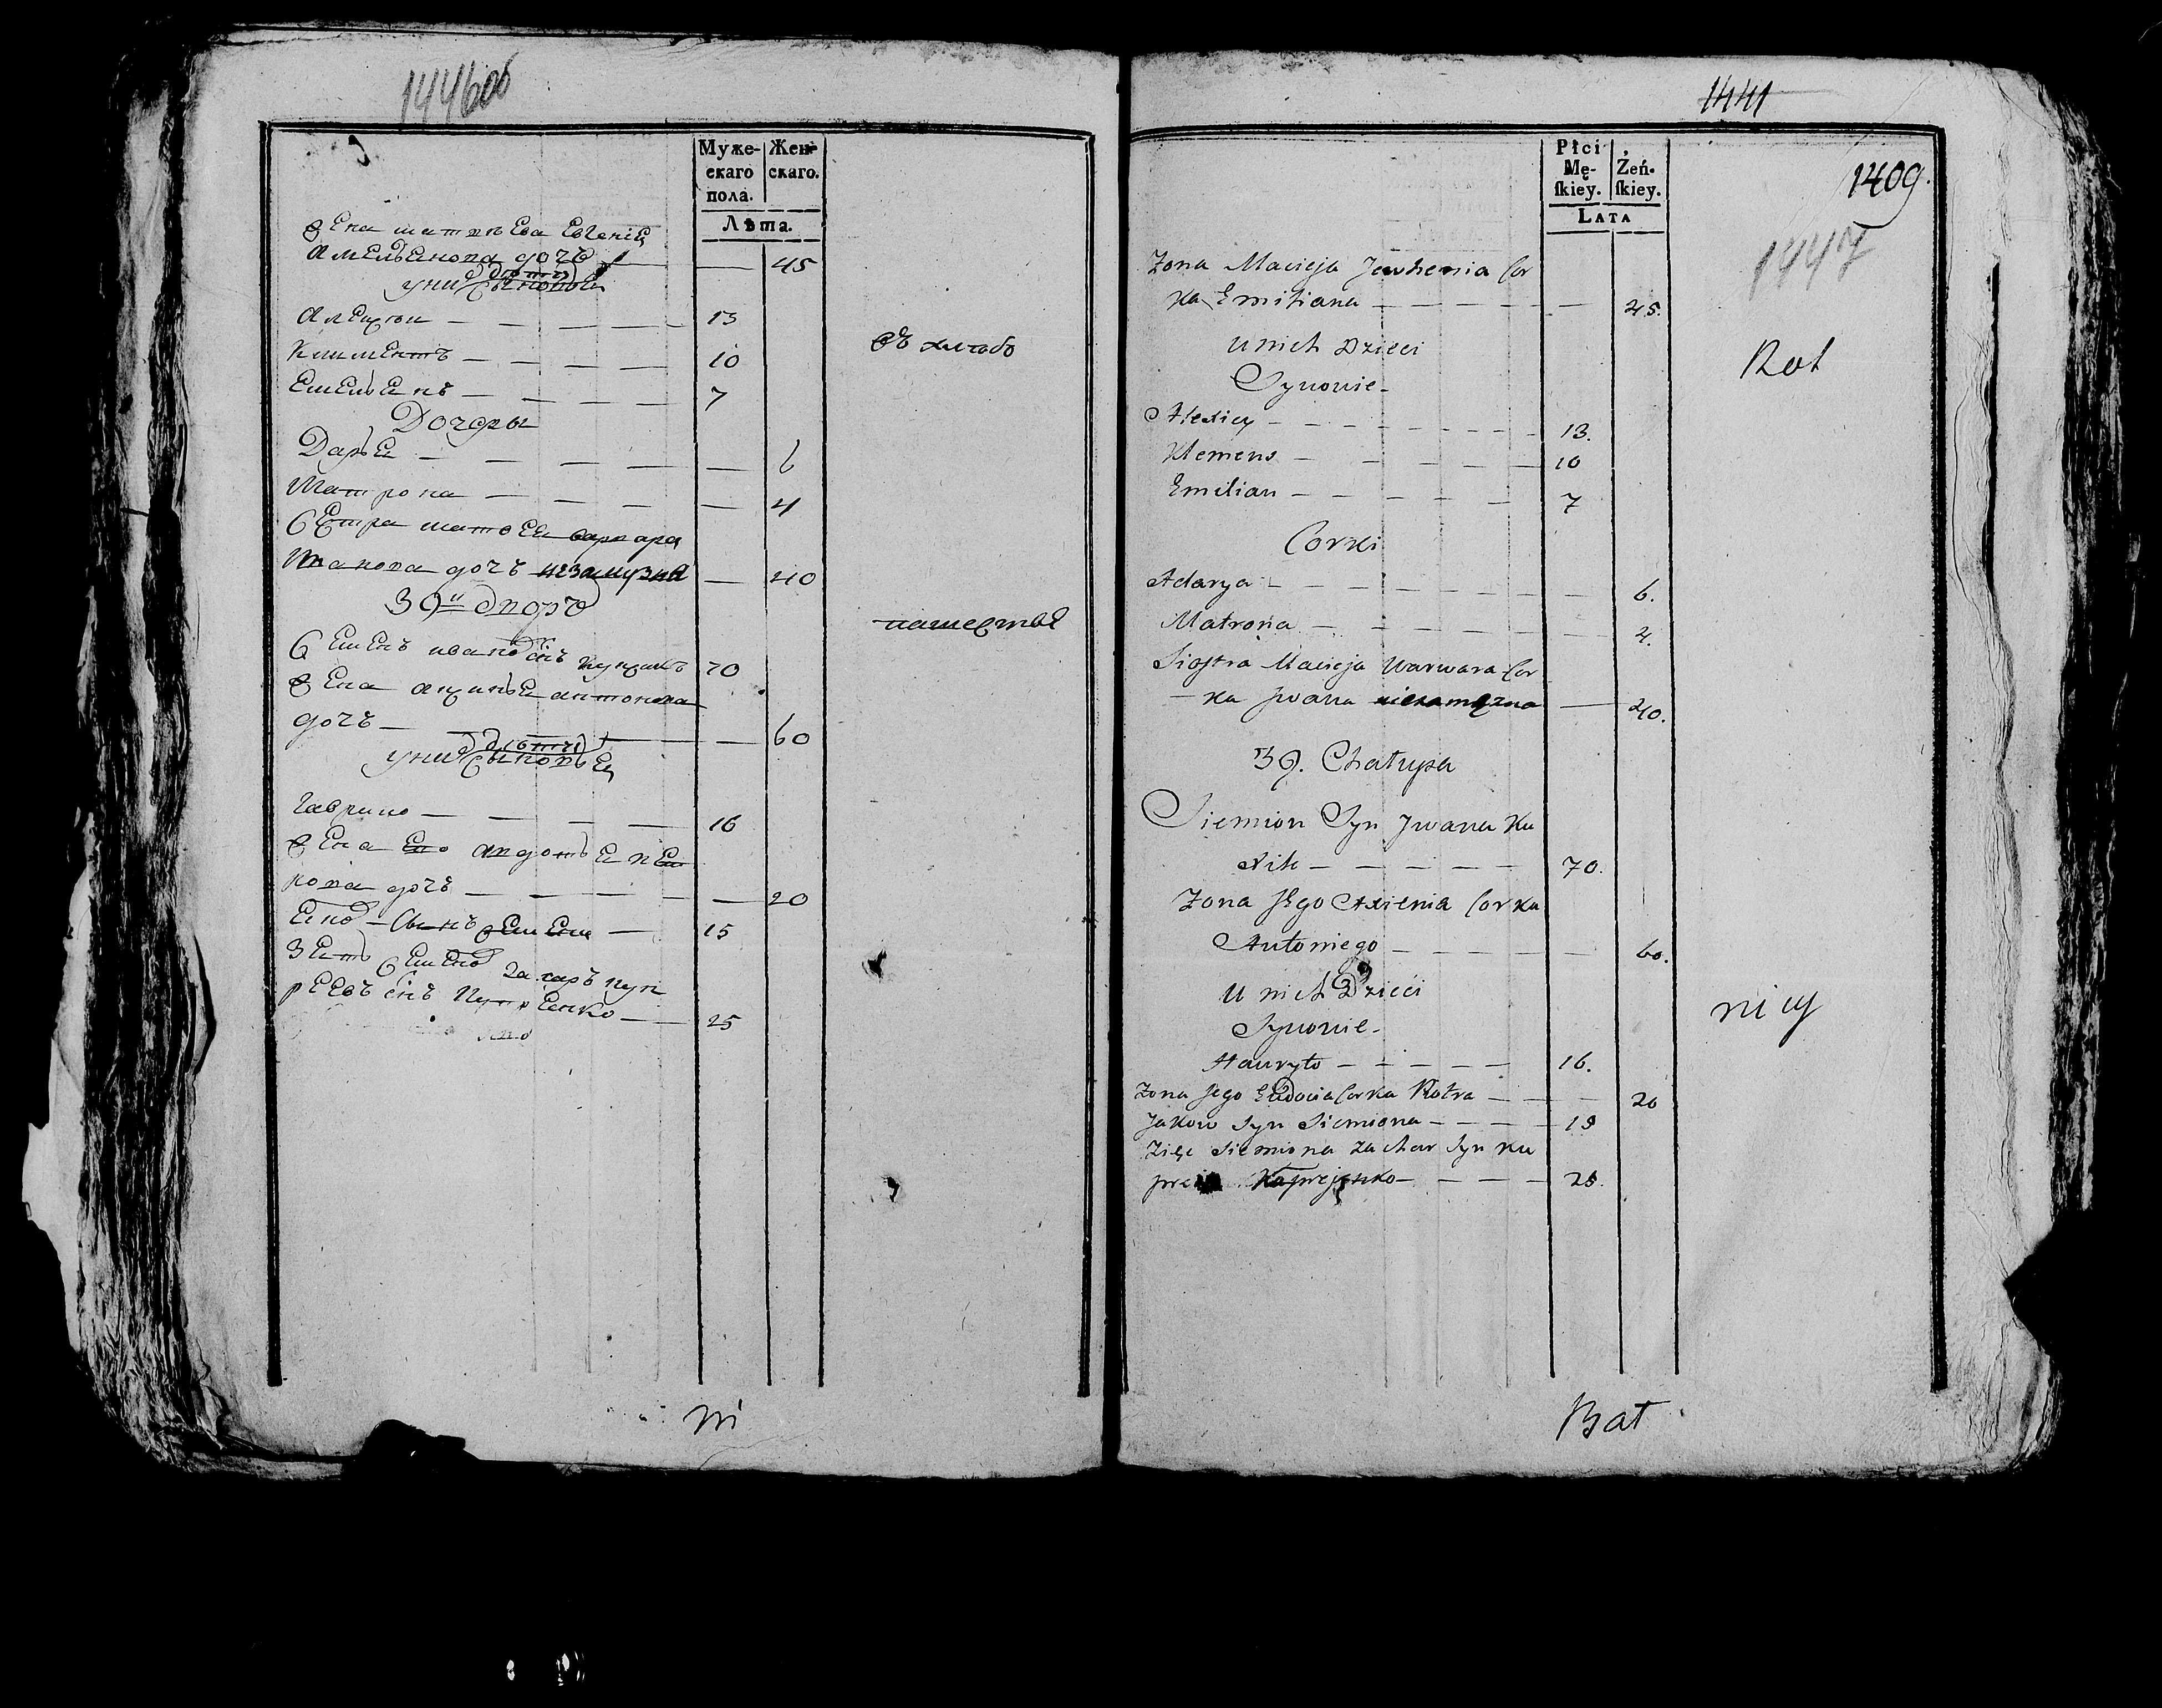 1446об
Муже-
скаго
пола.
Жен-
скаго.
Лѣта.
Жена матвѣева Евгенія
Амельенова дочь — 45
у них дѣти
Сыновья
Алексѣи — 13
Климентъ — 10
Емельенъ — 7
Дочеры
Дарья — 6
Матрона — 4
Сестра матвея варвара
Иванова дочь незамузна — 40
39й дворъ
Семенъ ивановъ снъ 70
Жена аксинья антонова
дочь — 60
у них дѣти
Сыновья
Гаврило — 16
Жена Его авдотья пет
рова дочь — 20
Его Сынъ — 15
Зеть Семена Захаръ куп
реевъ снъ — 25
ni
1441
1409.
1447
Płci
Mę-
skiey.
Żeń-
skiey.
Lata
Zona Macieja Jewhenia Cor
ka Emiliana — 45.
U nich Dzieci
Synowie
Alexiey — 13.
Klemens — 10
Emilian — 7
Corki
Adarya — 6.
Matrona — 4.
Siostra Macieja Warwara Cor
ka Jwana niezamęzna — 40.
39. Chałupa
Siemion Syn Jwana Ku
— 70.
Zona Jego Axienia Corka
Antoniego — 60.
U nich Dzieci
Synowie
Hawryło — 16.
Zona Jego Eudocia Corka Piotra — 20
Jakow Syn Siemiona — 15
Zięc Siemiona Zachar Syn Ku
Kuprejenko — 25.